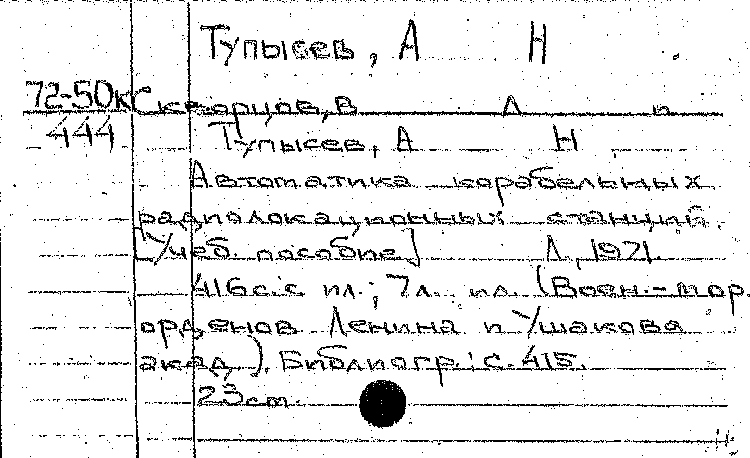 Тупысев, А Н
72-50к Скворцов, В Л и
444 Тупысев, А Н
Автоматика корабельных
радиолокационных станций.
[Учеб. пособие] Л., 1971.
416 с. с ил.; 7 л. ил. (Воен.-мор.
орденов Ленина и Ушакова
акад.). Библиогр.: с. 415.
23 cm.